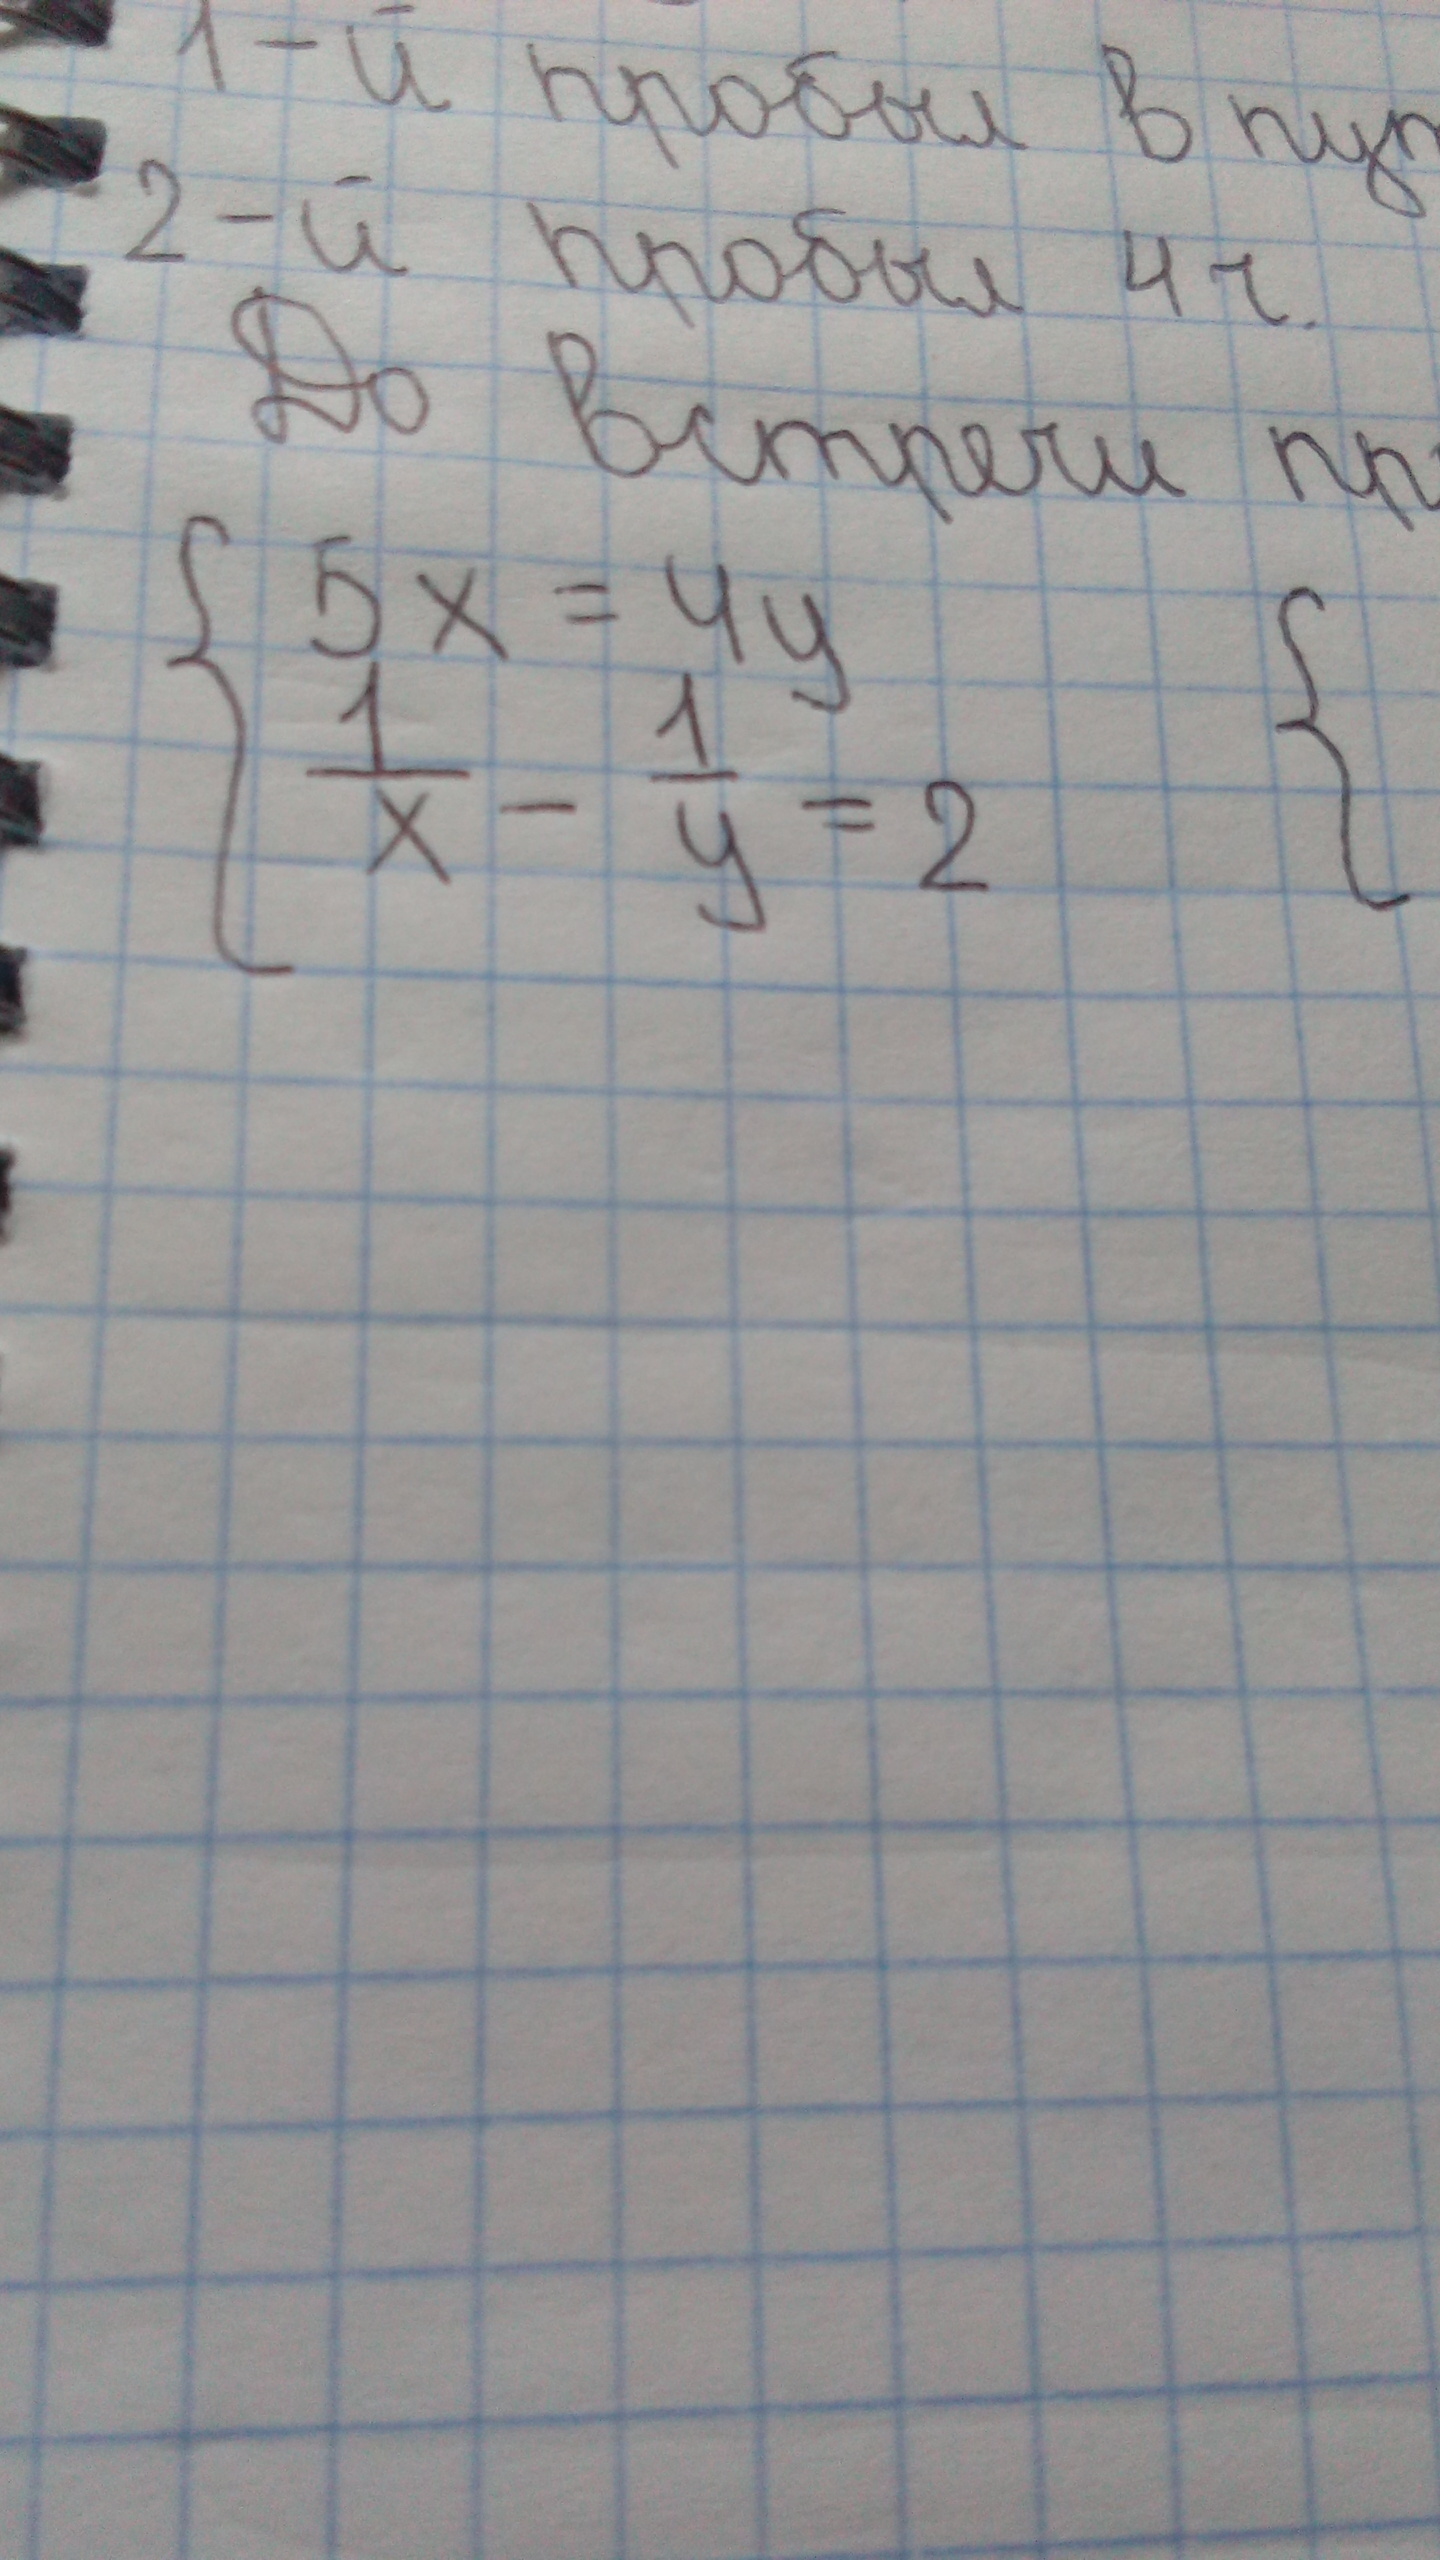 1-й пробыл в
2-й пробыл 4 ч.
До встречи
5x = 4y
1/x - 1/y = 2